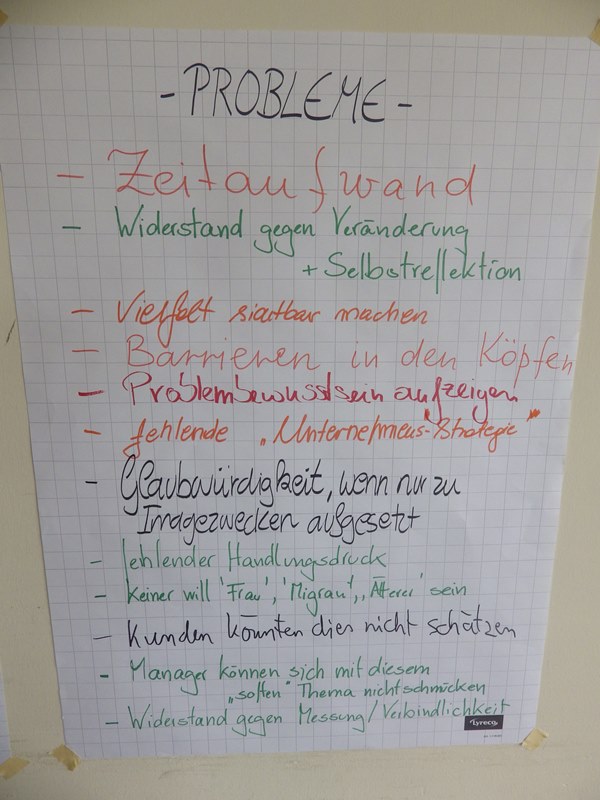 - PROBLEME -
- Zeitaufwand
- Widerstand gegen Veränderung
+ Selbstreflektion
- Vielfalt sichtbar machen
- Barrieren in den Köpfen
- Problembewusstsein aufzeigen
- fehlende "Unternehmens-Strategie"
- Glaubwürdigkeit, wenn nur zu
Imagezwecken aufgesetzt
- fehlender Handlungsdruck
- Keiner will 'Frau', 'Migrant', 'Älterer' sein
- Kunden könnten dies nicht schätzen
- Manager können sich mit diesem
"soften" Thema nicht schmücken
- Widerstand gegen Messung/Verbindlichkeit
lyreco